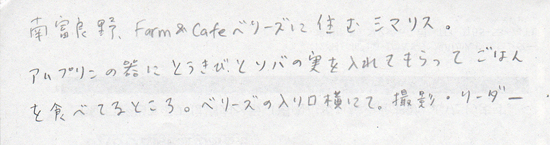 南富良野、Farm&Cafeベリーズに住むシマリス。
アムプリンの器にとうきびとソバの実を入れてもらってごはん
を食べてるところ。ベリーズの入り口横にて。撮影・リーダー